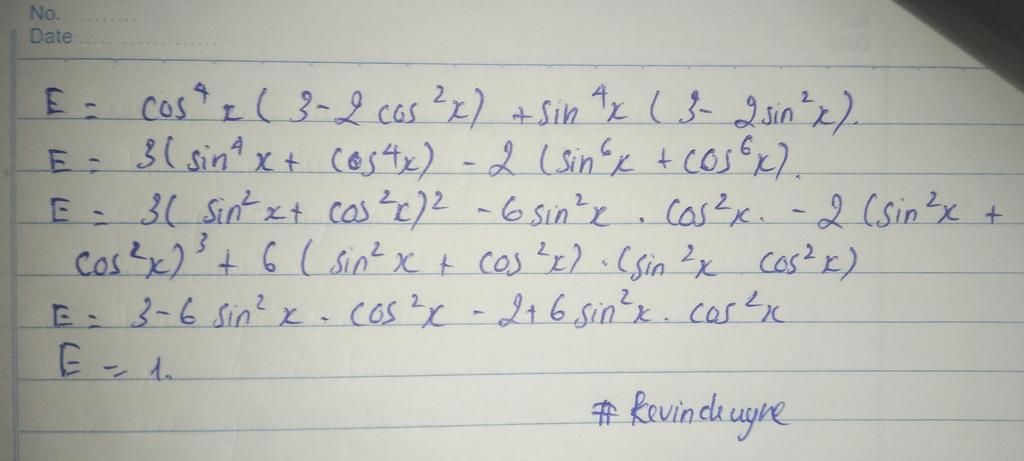 No. ..........
Date ......................
E = cos⁴x ( 3 - 2 cos²x) + sin⁴x ( 3 - 2sin²x).
E = 3( sin⁴ x + cos⁴x) - 2 (sin⁶x + cos⁶x).
E = 3( sin²x + cos²x)² - 6 sin²x . cos²x. - 2 (sin²x +
cos²x)³ + 6 ( sin²x + cos²x) . (sin²x cos²x)
E = 3-6 sin²x . cos²x - 2+6 sin²x. cos²x
E = 1.